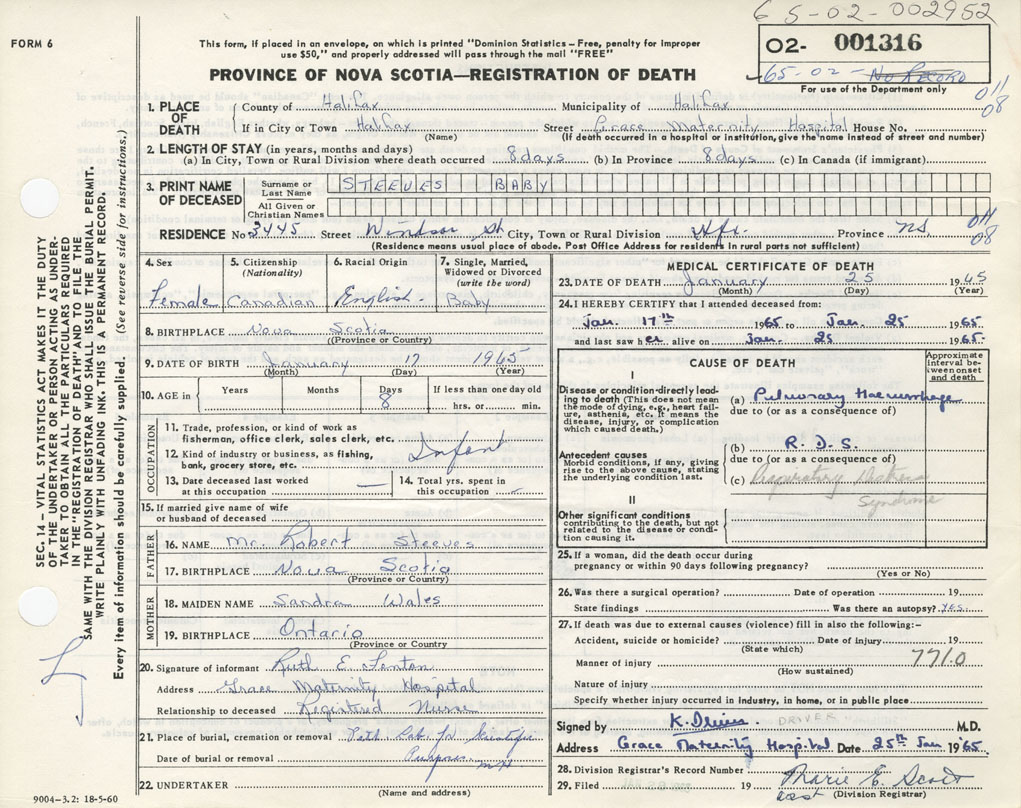 65-02-002952
FORM 6
This form, if placed in an envelope, on which is printed "Dominion Statistics - Free, penalty for improper
use $50," and properly addressed will pass through the mail "FREE"
02- 001316
65-02- No Record
For use of the Department only
PROVINCE OF NOVA SCOTIA—REGISTRATION OF DEATH
011
08
1. PLACE OF DEATH County of Halifax Municipality of Halifax
If in City or Town Halifax Street Grace Maternity Hospital House No.
(Name) (If death occurred in a hospital or institution, give the name instead of street and number)
2. LENGTH OF STAY (in years, months and days)
(a) In City, Town or Rural Division where death occurred 8 days (b) In Province 8 days (c) In Canada (if immigrant)
3. PRINT NAME OF DECEASED Surname or Last Name STEEVES BABY
All Given or Christian Names
RESIDENCE No 3445 Street Windsor St City, Town or Rural Division Hfx. Province NS
011
08
(Residence means usual place of abode. Post Office Address for residents in rural parts not sufficient)
4. Sex 5. Citizenship (Nationality) 6. Racial Origin 7. Single, Married, Widowed or Divorced (write the word)
Female Canadian English. Baby
8. BIRTHPLACE Nova Scotia
(Province or Country)
9. DATE OF BIRTH January 17 1965
(Month) (Day) (Year)
10. AGE in Years Months Days If less than one day old
8 hrs. or min.
OCCUPATION
11. Trade, profession, or kind of work as
fisherman, office clerk, sales clerk, etc.
12. Kind of industry or business, as fishing,
bank, grocery store, etc. Infant
13. Date deceased last worked at this occupation — 14. Total yrs. spent in this occupation —
15. If married give name of wife
or husband of deceased
FATHER
16. NAME Mr. Robert Steeves
17. BIRTHPLACE Nova Scotia
(Province or Country)
MOTHER
18. MAIDEN NAME Sandra Wales
19. BIRTHPLACE Ontario
(Province or Country)
20. Signature of informant Ruth E. Fenton
Address Grace Maternity Hospital
Relationship to deceased Registred Nurse
21. Place of burial, cremation or removal Path Lab. for Scientific
Date of burial or removal Purposes
22. UNDERTAKER
(Name and address)
MEDICAL CERTIFICATE OF DEATH
23. DATE OF DEATH January 25 1965
(Month) (Day) (Year)
24. I HEREBY CERTIFY that I attended deceased from:
Jan. 17th 1965 to Jan. 25 1965
and last saw her alive on Jan. 25 1965
CAUSE OF DEATH
Approximate interval between onset and death
I
Disease or condition directly leading to death (This does not mean the mode of dying, e.g., heart failure, asthenia, etc. It means the disease, injury, or complication which caused death.)
(a) Pulmonary Haemorrhage
due to (or as a consequence of)
Antecedent causes
Morbid conditions, if any, giving rise to the above cause, stating the underlying condition last.
(b) R.D.S.
due to (or as a consequence of)
(c) Respiratory Distress
Syndrome
II
Other significant conditions
contributing to the death, but not related to the disease or condition causing it.
25. If a woman, did the death occur during
pregnancy or within 90 days following pregnancy?
(Yes or No)
26. Was there a surgical operation? Date of operation 19
State findings Was there an autopsy? yes.
27. If death was due to external causes (violence) fill in also the following:-
Accident, suicide or homicide? Date of injury 19
(State which)
Manner of injury 771.0
(How sustained)
Nature of injury
Specify whether injury occurred in industry, in home, or in public place
Signed by K. Driver DRIVER M.D.
Address Grace Maternity Hospital Date 25th Jan 1965
28. Division Registrar's Record Number
29. Filed 19 Marie E. Scott
asst (Division Registrar)
SEC. 14 - VITAL STATISTICS ACT MAKES IT THE DUTY
OF THE UNDERTAKER OR PERSON ACTING AS UNDER-
TAKER TO OBTAIN ALL THE PARTICULARS REQUIRED
IN THE "REGISTRATION OF DEATH" AND TO FILE THE
SAME WITH THE DIVISION REGISTRAR WHO SHALL ISSUE THE BURIAL PERMIT.
WRITE PLAINLY WITH UNFADING INK. THIS IS A PERMANENT RECORD.
Every item of information should be carefully supplied. (See reverse side for instructions.)
9004-3.2: 18-5-60